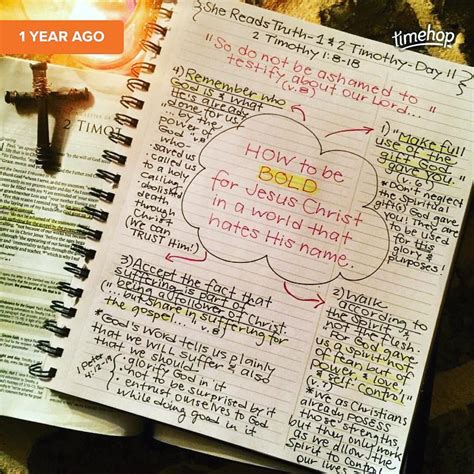 1 YEAR AGO
timehop
She Reads Truth - 1 & 2 Timothy - Day 11
2 Timothy 1:8-18
"So, do not be ashamed to
testify about our Lord..."
(v.8)
HOW to be
BOLD
for Jesus Christ
in a world that
hates His name.
1) "Make full
use of the
gift God
gave you."
(v.6)
*Don't neglect
the spiritual
gift(s) God gave
you! They are
to be used
for His
glory &
purposes!
2) Walk
according to
the Spirit,
not the flesh
"For God gave
us a spirit not
of fear but of
power & love &
self control."
(v.7)
*We as Christians
already POSSESS
those strengths,
but they only work
as we allow the
Spirit to control
our lives
3) Accept the fact that
suffering is part of
being a follower of Christ.
"...but share in suffering for
the gospel..." v.8
*God's Word tells us plainly
that we will suffer & also
that we should
glorify God in it
not to be surprised by it
entrust ourselves to God
while doing good in it
1 Peter
4:12-19
4) Remember who
God is & what
He's already
done for us
"... by the
power of
God who
saved us
& called us
to a holy
calling...
abolished
death
through
Christ"
(we can
TRUST Him!)
2 TIMOT